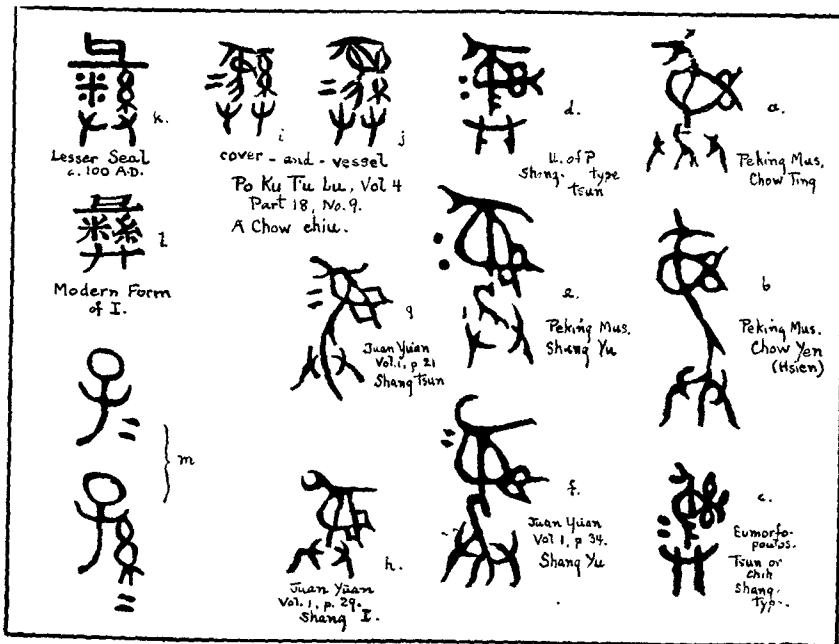 k.
Lesser Seal
c. 100 A.D.
l
Modern Form
of I.
m
i
j
cover - and - vessel
Po Ku T'u Lu, Vol 4
Part 18, No. 9.
A Chow chiu.
g
Juan Yüan
Vol. 1, p 21
Shang Tsun
h.
Juan Yüan
Vol. 1, p. 29.
Shang I.
d.
U. of P
Shang- type
tsun
e.
Peking Mus.
Shang Yu
f.
Juan Yüan
Vol 1, p 34.
Shang Yu
a.
Peking Mus.
Chow Ting
b
Peking Mus.
Chow Yen
(Hsien)
c.
Eumorfo-
poulos.
Tsun or
chih
Shang-
typ